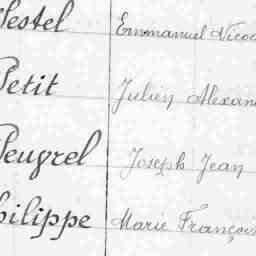 Pestel Emmanuel Nico
Petit Julien Alexan
Peuvrel Joseph Jean
hilippe Marie Françoi